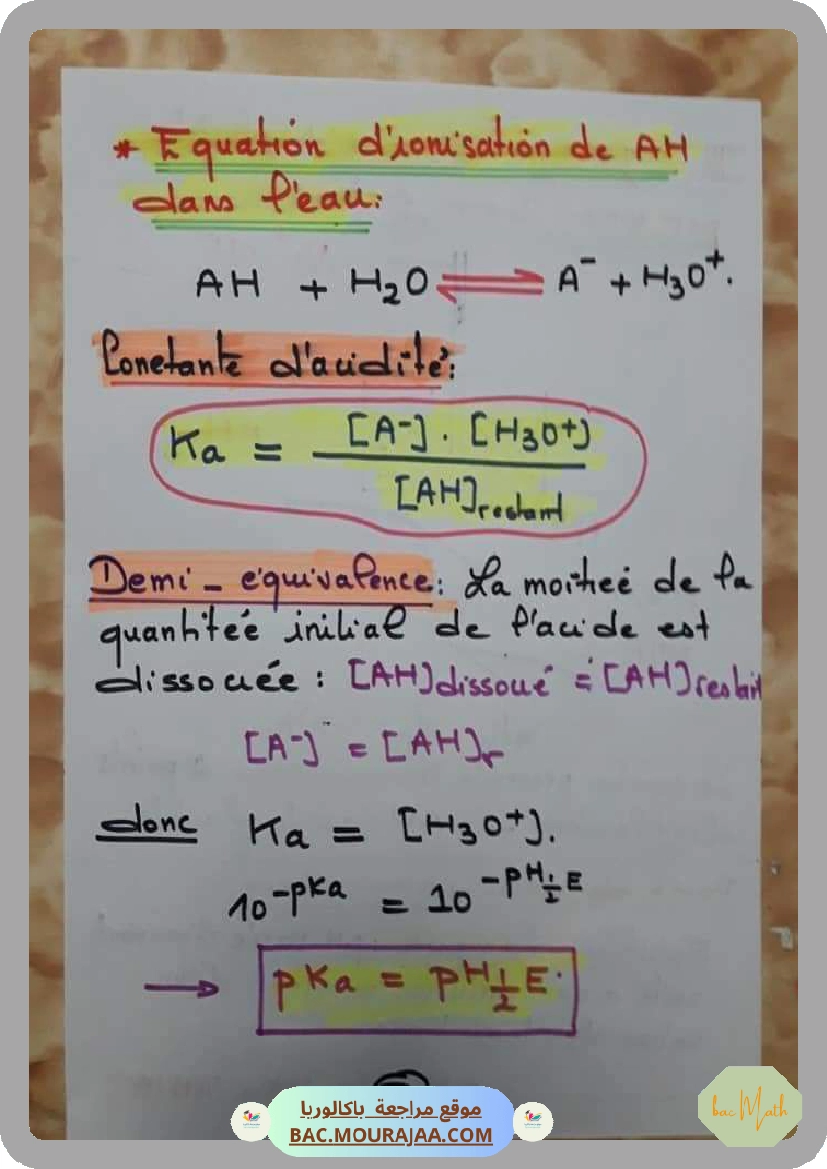 * Equation d'ionisation de AH
dans l'eau:
AH + H₂O ⇌ A⁻ + H₃O⁺.
Constante d'acidité:
Ka = [A⁻] . [H₃O⁺]
[AH]restant
Demi - équivalence: La moitieé de la
quantiteé initial de l'acide est
dissociée : [AH]dissoué = [AH]restant
[A⁻] = [AH]r
donc Ka = [H₃O⁺].
10^-pKa = 10^-pH½E
→ pKa = pH½E.
موقع مراجعة باكالوريا
BAC.MOURAJAA.COM
bac Math